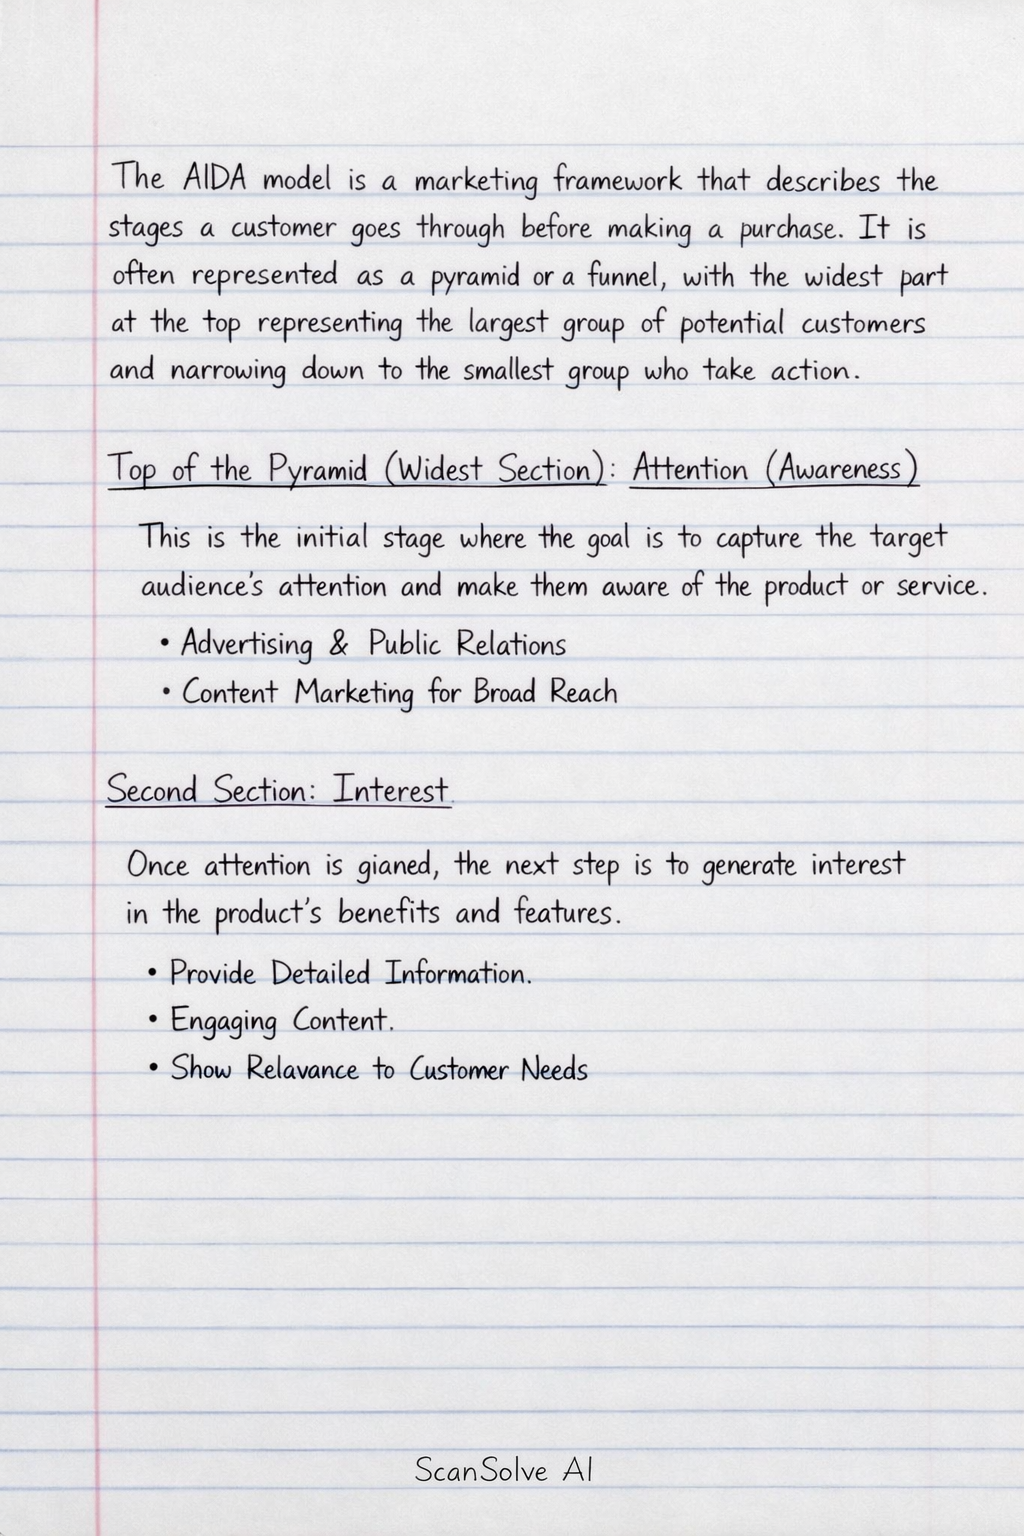 The AIDA model is a marketing framework that describes the
stages a customer goes through before making a purchase. It is
often represented as a pyramid or a funnel, with the widest part
at the top representing the largest group of potential customers
and narrowing down to the smallest group who take action.
Top of the Pyramid (Widest Section): Attention (Awareness)
This is the initial stage where the goal is to capture the target
audience's attention and make them aware of the product or service.
• Advertising & Public Relations
• Content Marketing for Broad Reach
Second Section: Interest
Once attention is gianed, the next step is to generate interest
in the product's benefits and features.
• Provide Detailed Information.
• Engaging Content.
• Show Relavance to Customer Needs
ScanSolve AI